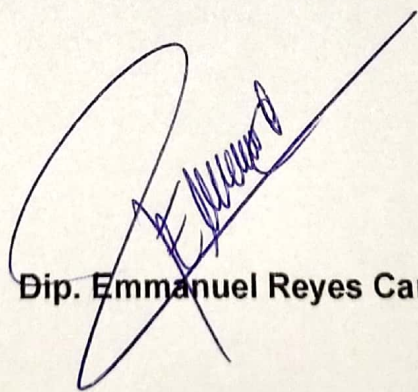 Dip. Emmanuel Reyes Ca